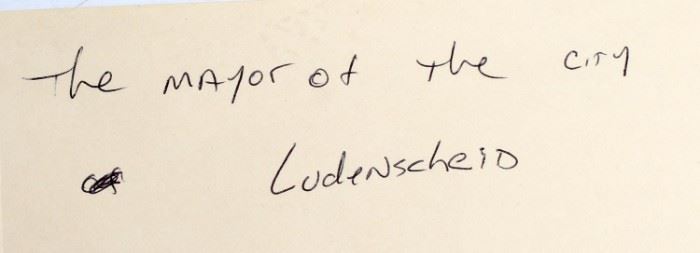 The MAyor of the city
LudenscheiD